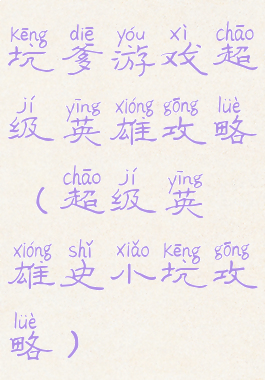 kēng diē yóu xì chāo
坑爹游戏超
jí yīng xióng gōng lüè
级英雄攻略
chāo jí yīng
(超级英
xióng shǐ xiǎo kēng gōng
雄史小坑攻
lüè
略)